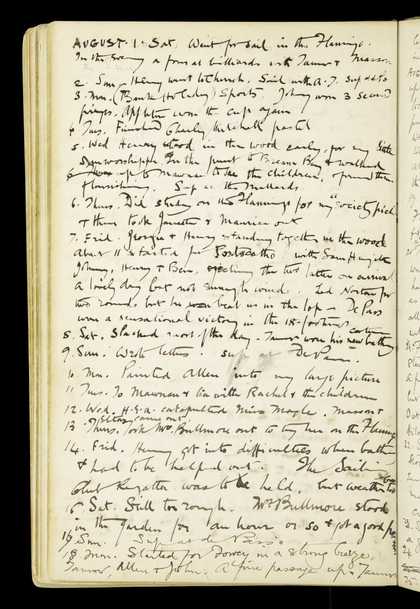 AUGUST. 1. Sat. Went for sail in the Flamingo.
In the evening a few at billiards with Tanner &
2. Sun. Henry went to church. Sail with A. J. Sup
3. Mon. (Bank Holiday) Sports. Johnny won 3 second
prizes. Appleton won the cup again
4. Tues. Finished Charley Mitchell pastel
5. Wed Henry stood in the wood early for my
In the punt to Bream Bay & walked
up to Mawnan to see the children, found them
flourishing. Sup at the
6. Thurs. Did study on the Flamingo for my society pict.
& then took Janette & Maurice out
7. Frid. Georgie & Henry standing together in the wood
about 11 started for with Sam Hingston
Johnny, Henry & Ben, the two latter on
a lovely day but not enough wind. Led Norton for
two rounds but he beat us in the lop - De Pass
won a sensational victory in the 18-footings
8. Sat. Slacked most of the day. Tanner won his new
9. Sun. Wrote letters. sup at De
10. Mon. Painted Allen into my large picture
11. Tues. To Mawnan & tea with Rachel & the children
12. Wed. H.S.A. catapulted Miss Mayle.
13. Thurs. Took Mrs. Bullmore out to try her in the Flamingo
14. Frid. Henry got into difficulties when bath
& had to be helped out. The Sailing
Club Regatta was to be held, but weather too
15 Sat. Still too rough. Mrs Bullmore stood
in the garden for an hour or so & got a good
16 Sun. Sup at de Pass.
18 Mon. Started for Fowey in a strong breeze,
Tanner, Allen & John. A fine passage up.